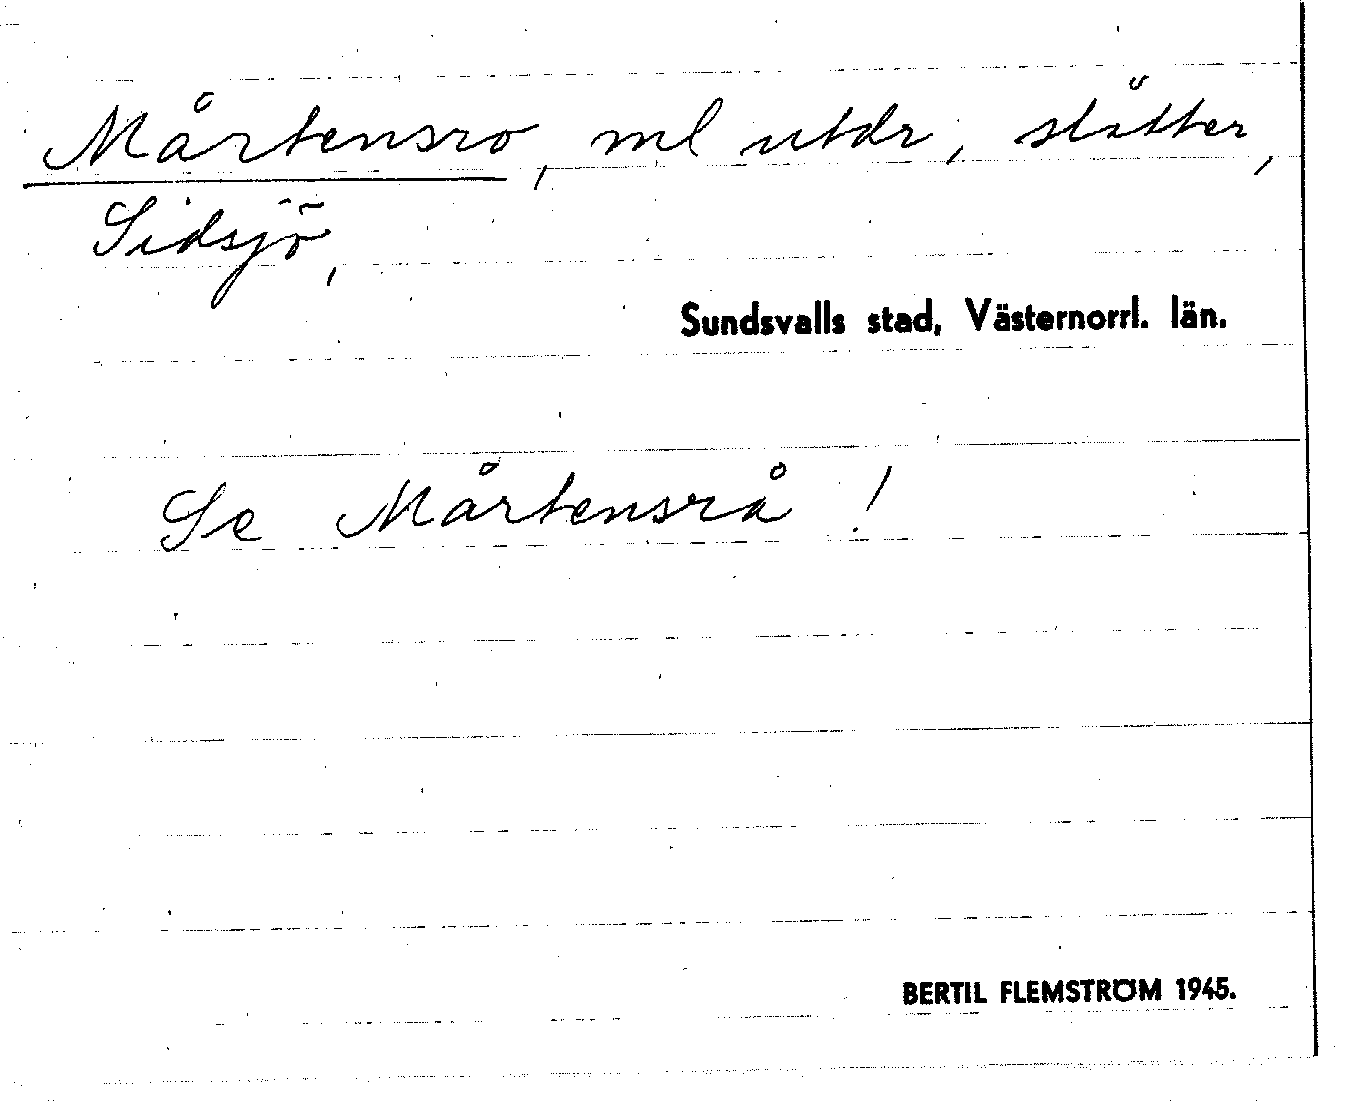 Mårtensro, ml utdr, slåtter,
Sidsjö,
Sundsvalls stad, Västernorrl. län.
Se Mårtensrå!
BERTIL FLEMSTRÖM 1945.